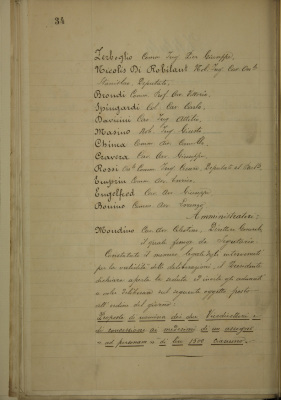 34
Zerboglio Comm. Ing. Cav. Giuseppe,
Nicolis Di Robilant Nob. Ing. Cav. Conte
Stanislao Deputato,
Brondi Comm. Prof. Avv. Vittorio,
Spingardi Col. Cav. Carlo,
Daviuni Cav. Ing. Attilio,
Masino Rob. Ing. Guido
Chima Comm. Avv. Camillo,
Cravera Cav. Avv. Giuseppe,
Rossi Deputato
Comm. Avv.
Engelfred Cav. Avv.
Bonino Comm. Avv. Lorenzo
Amministratori:
Mondino Cav. Avv. Celestino, Direttore Generale,
il quale funge da Segretario.
Constatato il numero legale degli intervenuti
per la validità delle deliberazioni, il Presidente
dichiara aperta la seduta ed invita gli adunati
a voler deliberare sul seguente oggetto posto
all'ordine del giorno:
Proposta di nomina dei due Vicedirettori e
di concessione ai medesimi di un assegno
ad personam di Lire